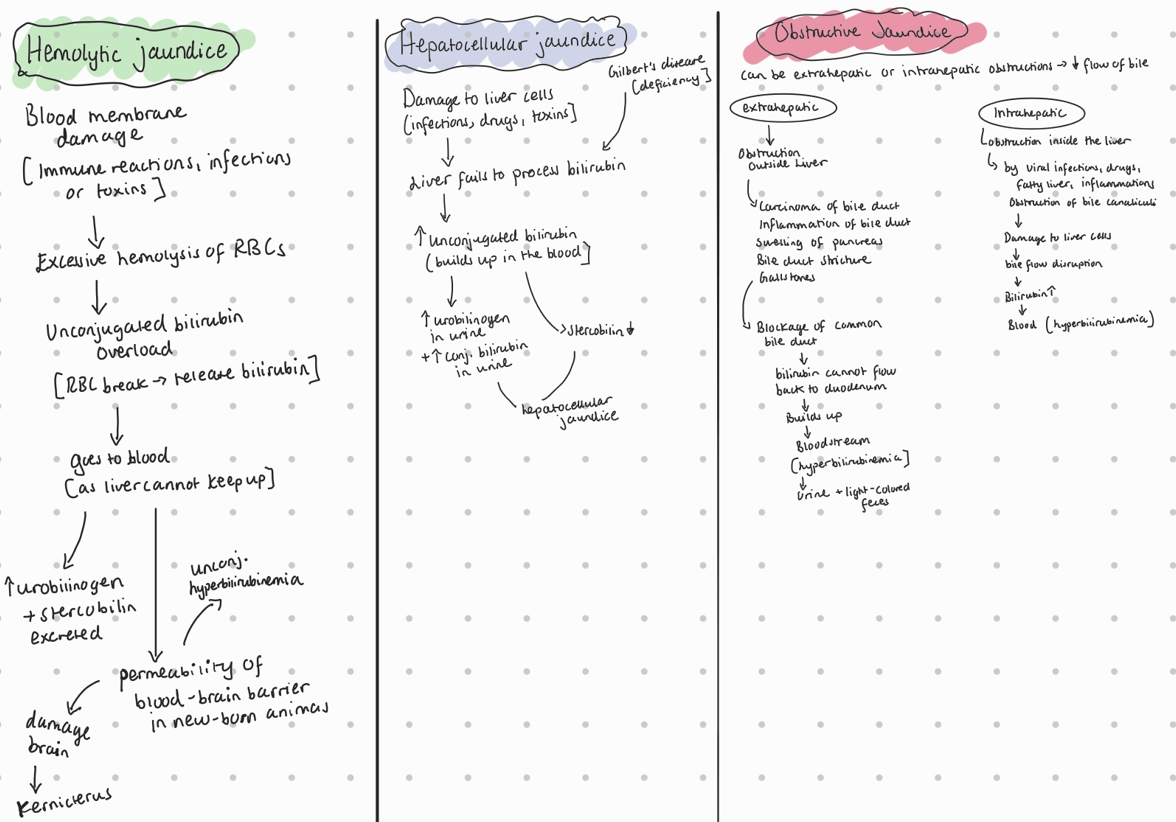 Hemolytic jaundice
Blood membrane
damage
[Immune reactions, infections
or toxins]
↓
Excessive hemolysis of RBCs
↓
Unconjugated bilirubin
overload
[RBC break → release bilirubin]
↓
goes to blood
[as liver cannot keep up]
↑ urobilinogen
+ stercobilin
excreted
unconj.
hyperbilirubinemia
permeability of
blood-brain barrier
in new-born animas
damage
brain
↓
Kernicterus
Hepatocellular jaundice
Gilbert's disease
[deficiency]
Damage to liver cells
[infections, drugs, toxins]
↓
Liver fails to process bilirubin
↓
↑ Unconjugated bilirubin
[builds up in the blood]
↓
↑ urobilinogen
in urine
+ ↑ conj. bilirubin
in urine
stercobilin ↓
hepatocellular
jaundice
Obstructive Jaundice
can be extrahepatic or intrahepatic obstructions → ↓ flow of bile
extrahepatic
↓
Obstruction
outside liver
Carcinoma of bile duct
Inflammation of bile duct
swelling of pancreas
Bile duct stricture
Gallstones
Blockage of common
bile duct
↓
bilirubin cannot flow
back to duodenum
↓
Builds up
↓
Bloodstream
[hyperbilirubinemia]
↓
Urine + light-colored
feces
Intrahepatic
obstruction inside the liver
by viral infections, drugs,
Fatty liver, inflammations
Obstruction of bile canaliculi
↓
Damage to liver cells
↓
bile flow disruption
↓
Bilirubin ↑
↓
Blood (hyperbilirubinemia)